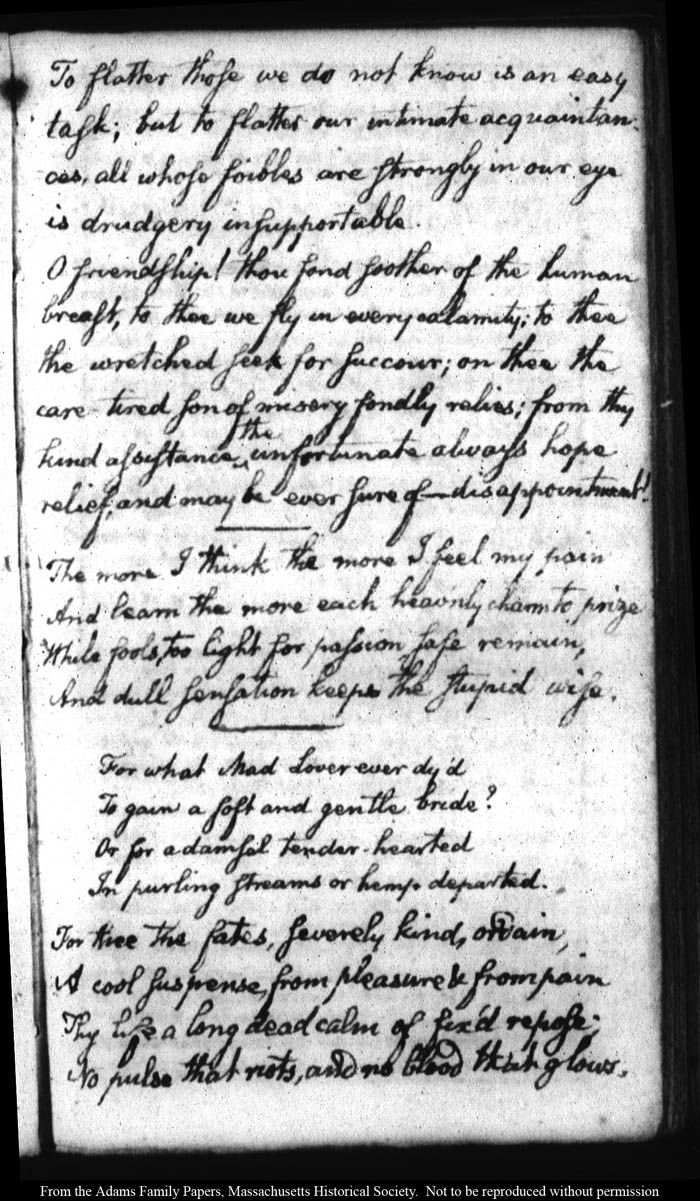 To flatter those we do not know is an easy
task; but to flatter our intimate acquaintan-
ces, all whose foibles are strongly in our eye
is drudgery insupportable.
O friendship! thou fond soother of the human
breast, to thee we fly in every calamity; to thee
the wretched seek for succour; on thee the
care-tired son of misery fondly relies; from thy
kind assistance, the unfortunate always hope
relief, and may be ever sure of—disappointment!
The more I think the more I feel my pain
And learn the more each heav'nly charm to prize
While fools, too light for passion safe remain,
And dull sensation keeps the stupid wise.
For what Mad Lover ever dy'd
To gain a soft and gentle bride?
Or for a damsel tender-hearted
In purling streams or hemp departed.
For thee the fates, severely kind, ordain,
A cool suspense, from pleasure & from pain
Thy life a long dead calm of fix'd repose;
No pulse that riots, and no blood that glows.
From the Adams Family Papers, Massachusetts Historical Society. Not to be reproduced without permission